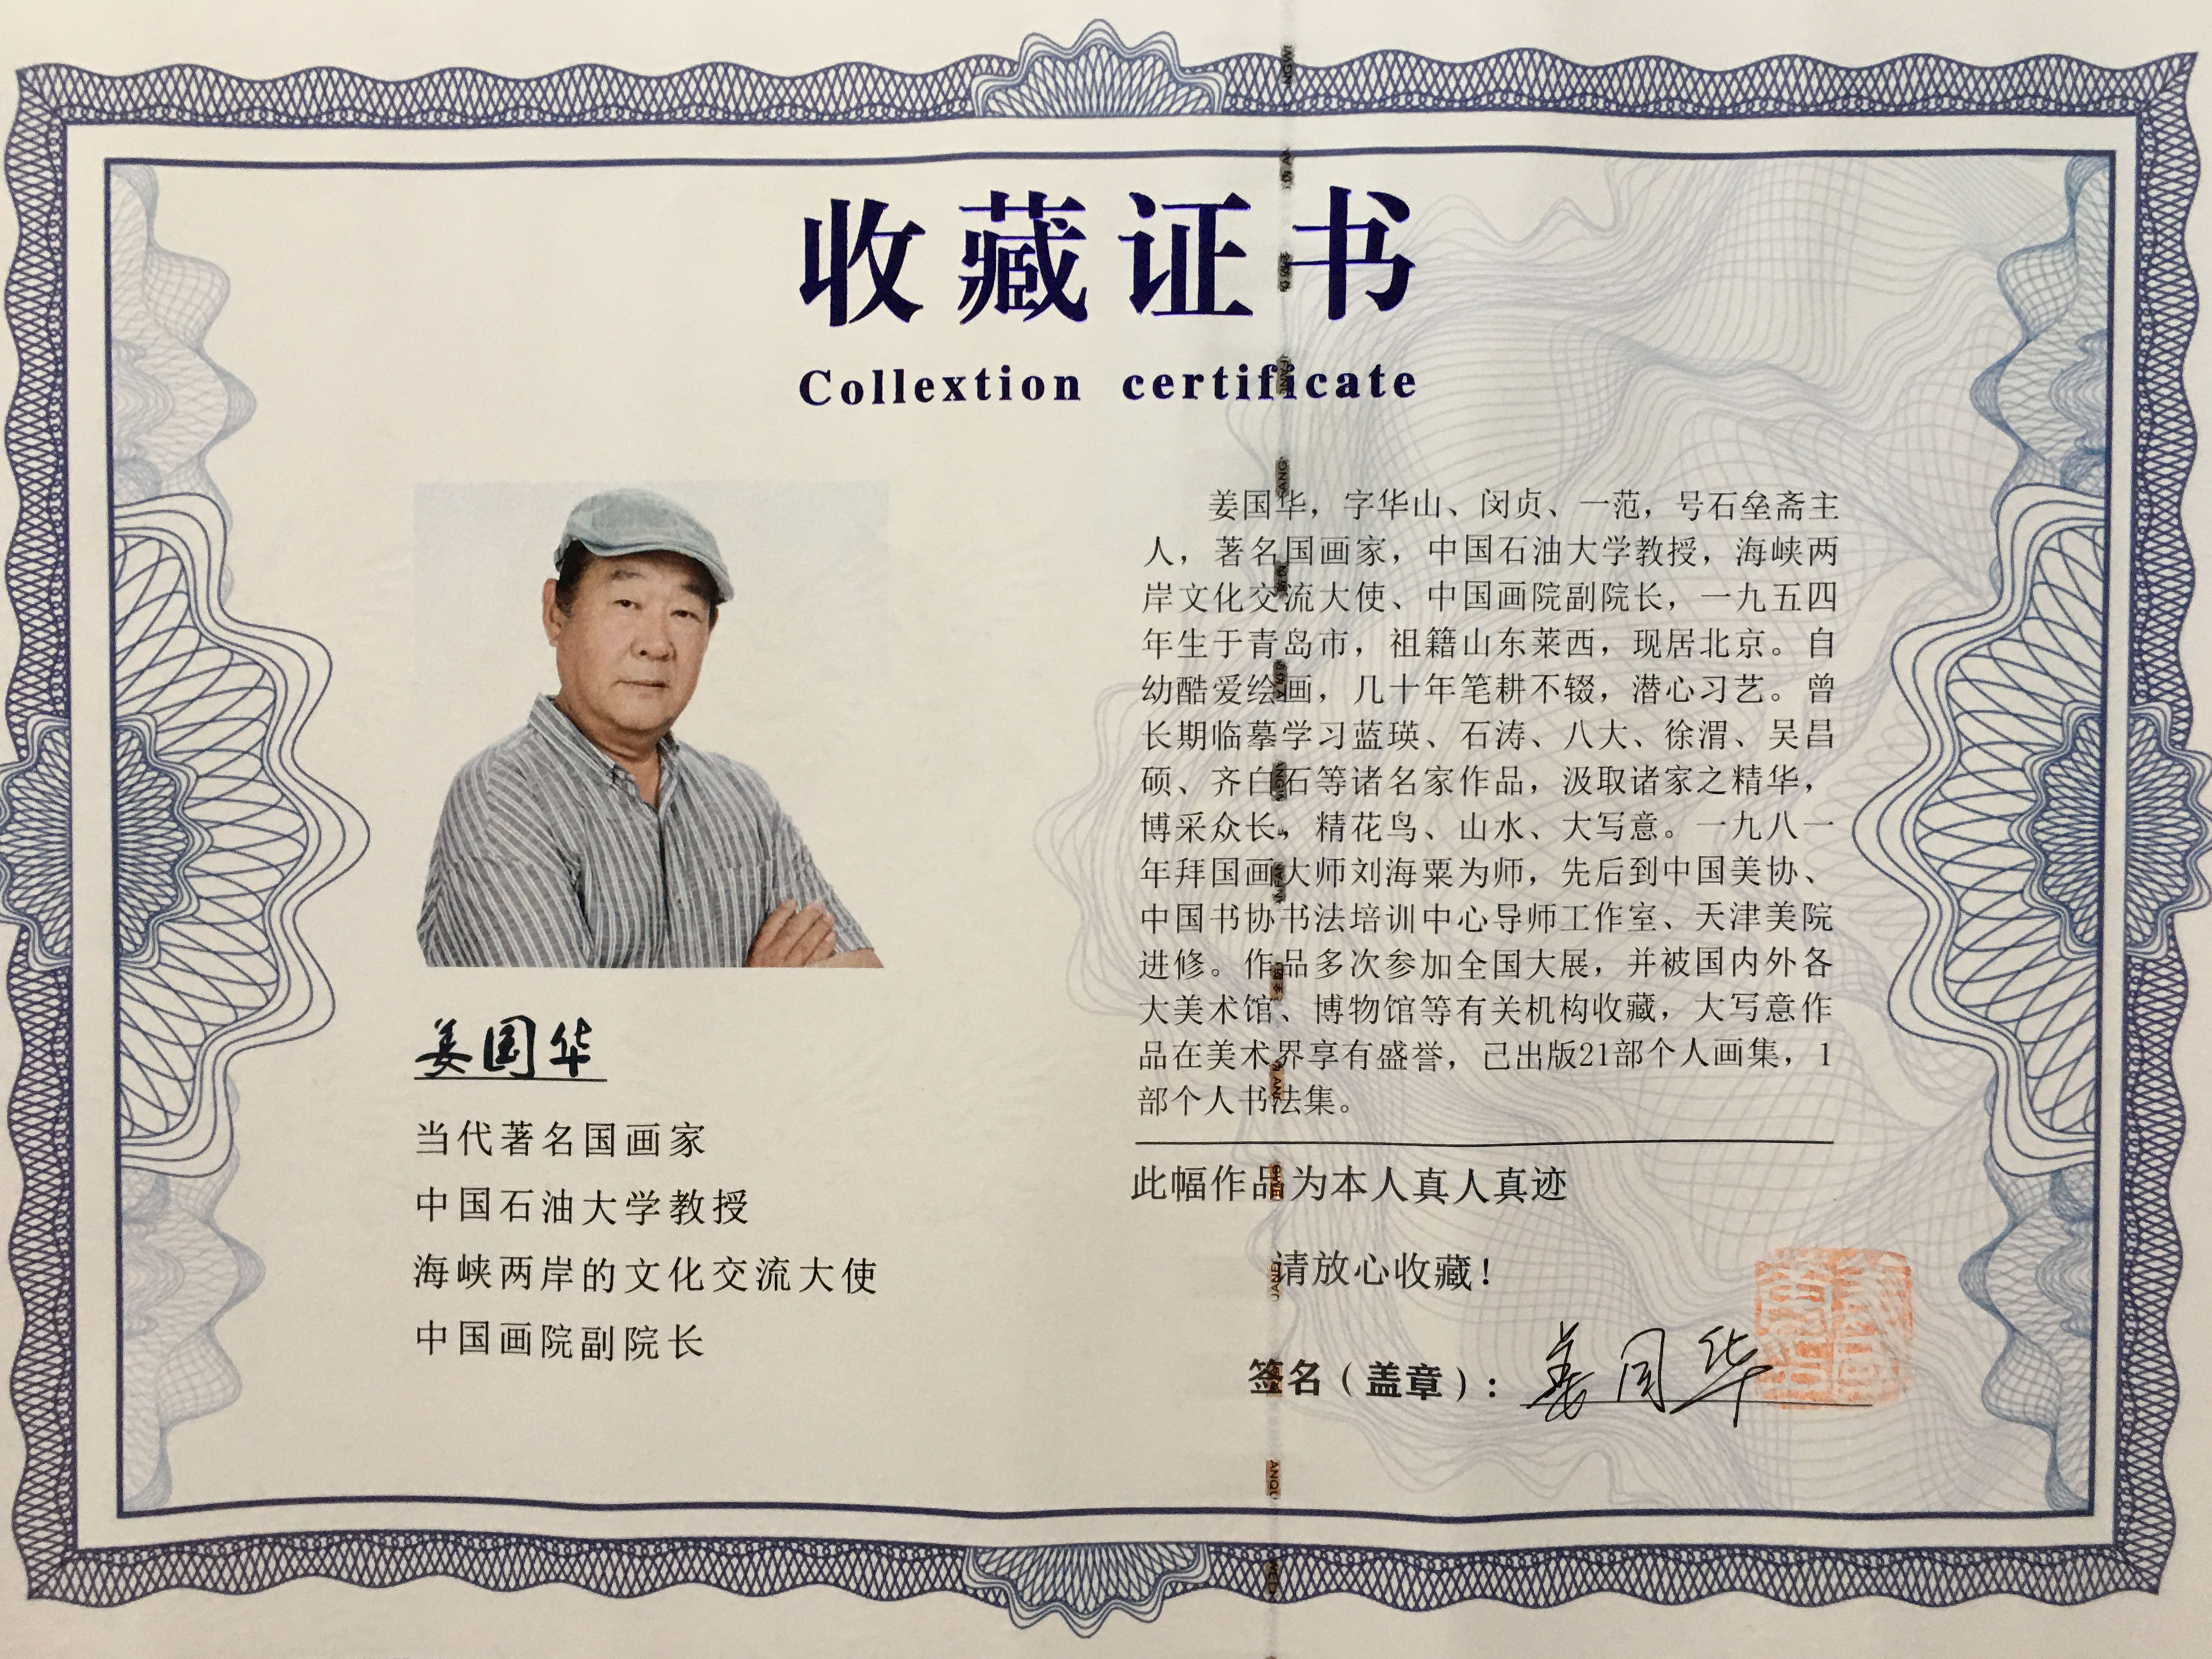 收藏证书
Collextion certificate
姜国华
当代著名国画家
中国石油大学教授
海峡两岸的文化交流大使
中国画院副院长
姜国华，字华山、闵贞、一范，号石垒斋主
人，著名国画家，中国石油大学教授，海峡两
岸文化交流大使、中国画院副院长，一九五四
年生于青岛市，祖籍山东莱西，现居北京。自
幼酷爱绘画，几十年笔耕不辍，潜心习艺。曾
长期临摹学习蓝瑛、石涛、八大、徐渭、吴昌
硕、齐白石等诸名家作品，汲取诸家之精华，
博采众长，精花鸟、山水、大写意。一九八一
年拜国画大师刘海粟为师，先后到中国美协、
中国书协书法培训中心导师工作室、天津美院
进修。作品多次参加全国大展，并被国内外各
大美术馆、博物馆等有关机构收藏，大写意作
品在美术界享有盛誉，己出版21部个人画集，1
部个人书法集。
此幅作品为本人真人真迹
请放心收藏！
签名（盖章）：姜国华